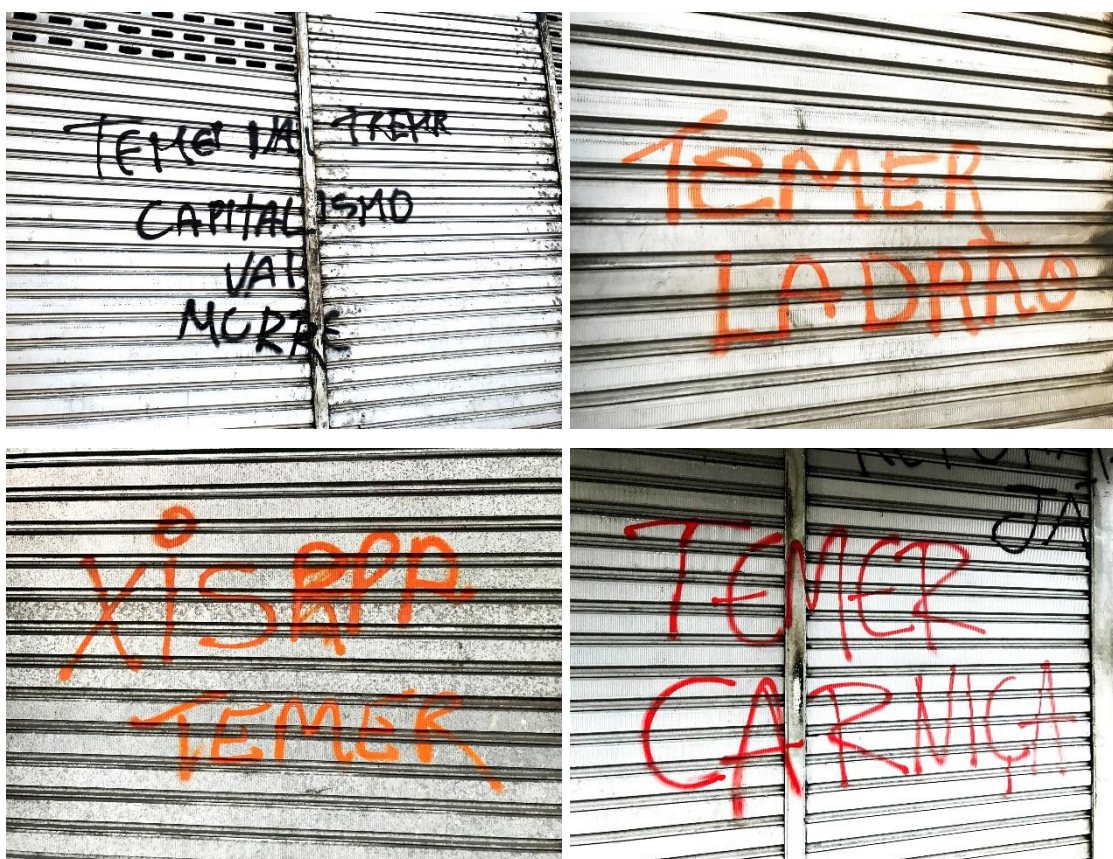 TEMER VAI TREMR
CAPITALISMO
VAI
MORRE
TEMER
LADRÃO
XISPPR
TEMER
JÁ
TEMER
CARNIÇA